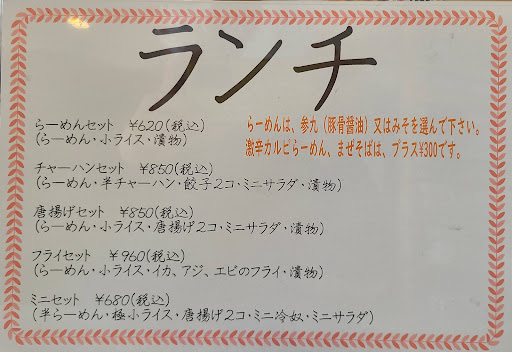 ランチ
らーめんセット ¥620(税込)
(らーめん・小ライス・漬物)
らーめんは、参九(豚骨醤油)又はみそを選んで下さい。
激辛カルビらーめん、まぜそばは、プラス¥300です。
チャーハンセット ¥850(税込)
(らーめん・半チャーハン・餃子2コ・ミニサラダ・漬物)
唐揚げセット ¥850(税込)
(らーめん・小ライス・唐揚げ2コ・ミニサラダ・漬物)
フライセット ¥960(税込)
(らーめん・小ライス・イカ、アジ、エビのフライ・漬物)
ミニセット ¥680(税込)
(半らーめん・極小ライス・唐揚げ2コ・ミニ冷奴・ミニサラダ)